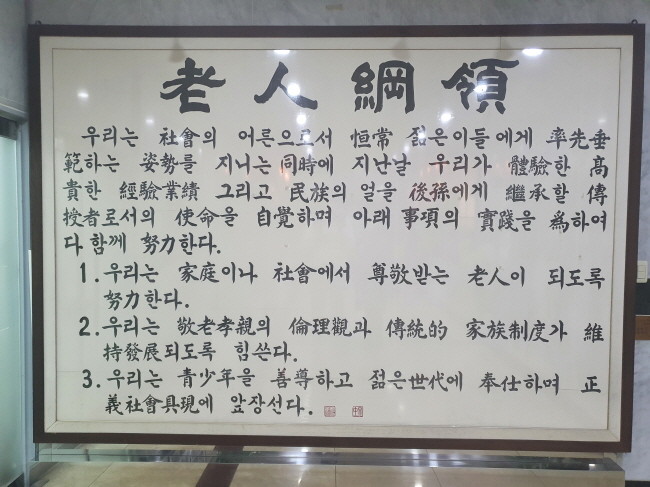 老人綱領
우리는 社會의 어른으로서 恒常 젊은이들에게 率先垂
範하는 姿勢를 지니는 同時에 지난날 우리가 體驗한 高
貴한 經驗業績 그리고 民族의 얼을 後孫에게 繼承할 傳
授者로서의 使命을 自覺하며 아래 事項의 實踐을 爲하여
다 함께 努力한다.
1. 우리는 家庭이나 社會에서 尊敬받는 老人이 되도록
努力한다.
2. 우리는 敬老孝親의 倫理觀과 傳統的 家族制度가 維
持發展되도록 힘쓴다.
3. 우리는 靑少年을 善導하고 젊은世代에 奉仕하며 正
義社會具現에 앞장선다.